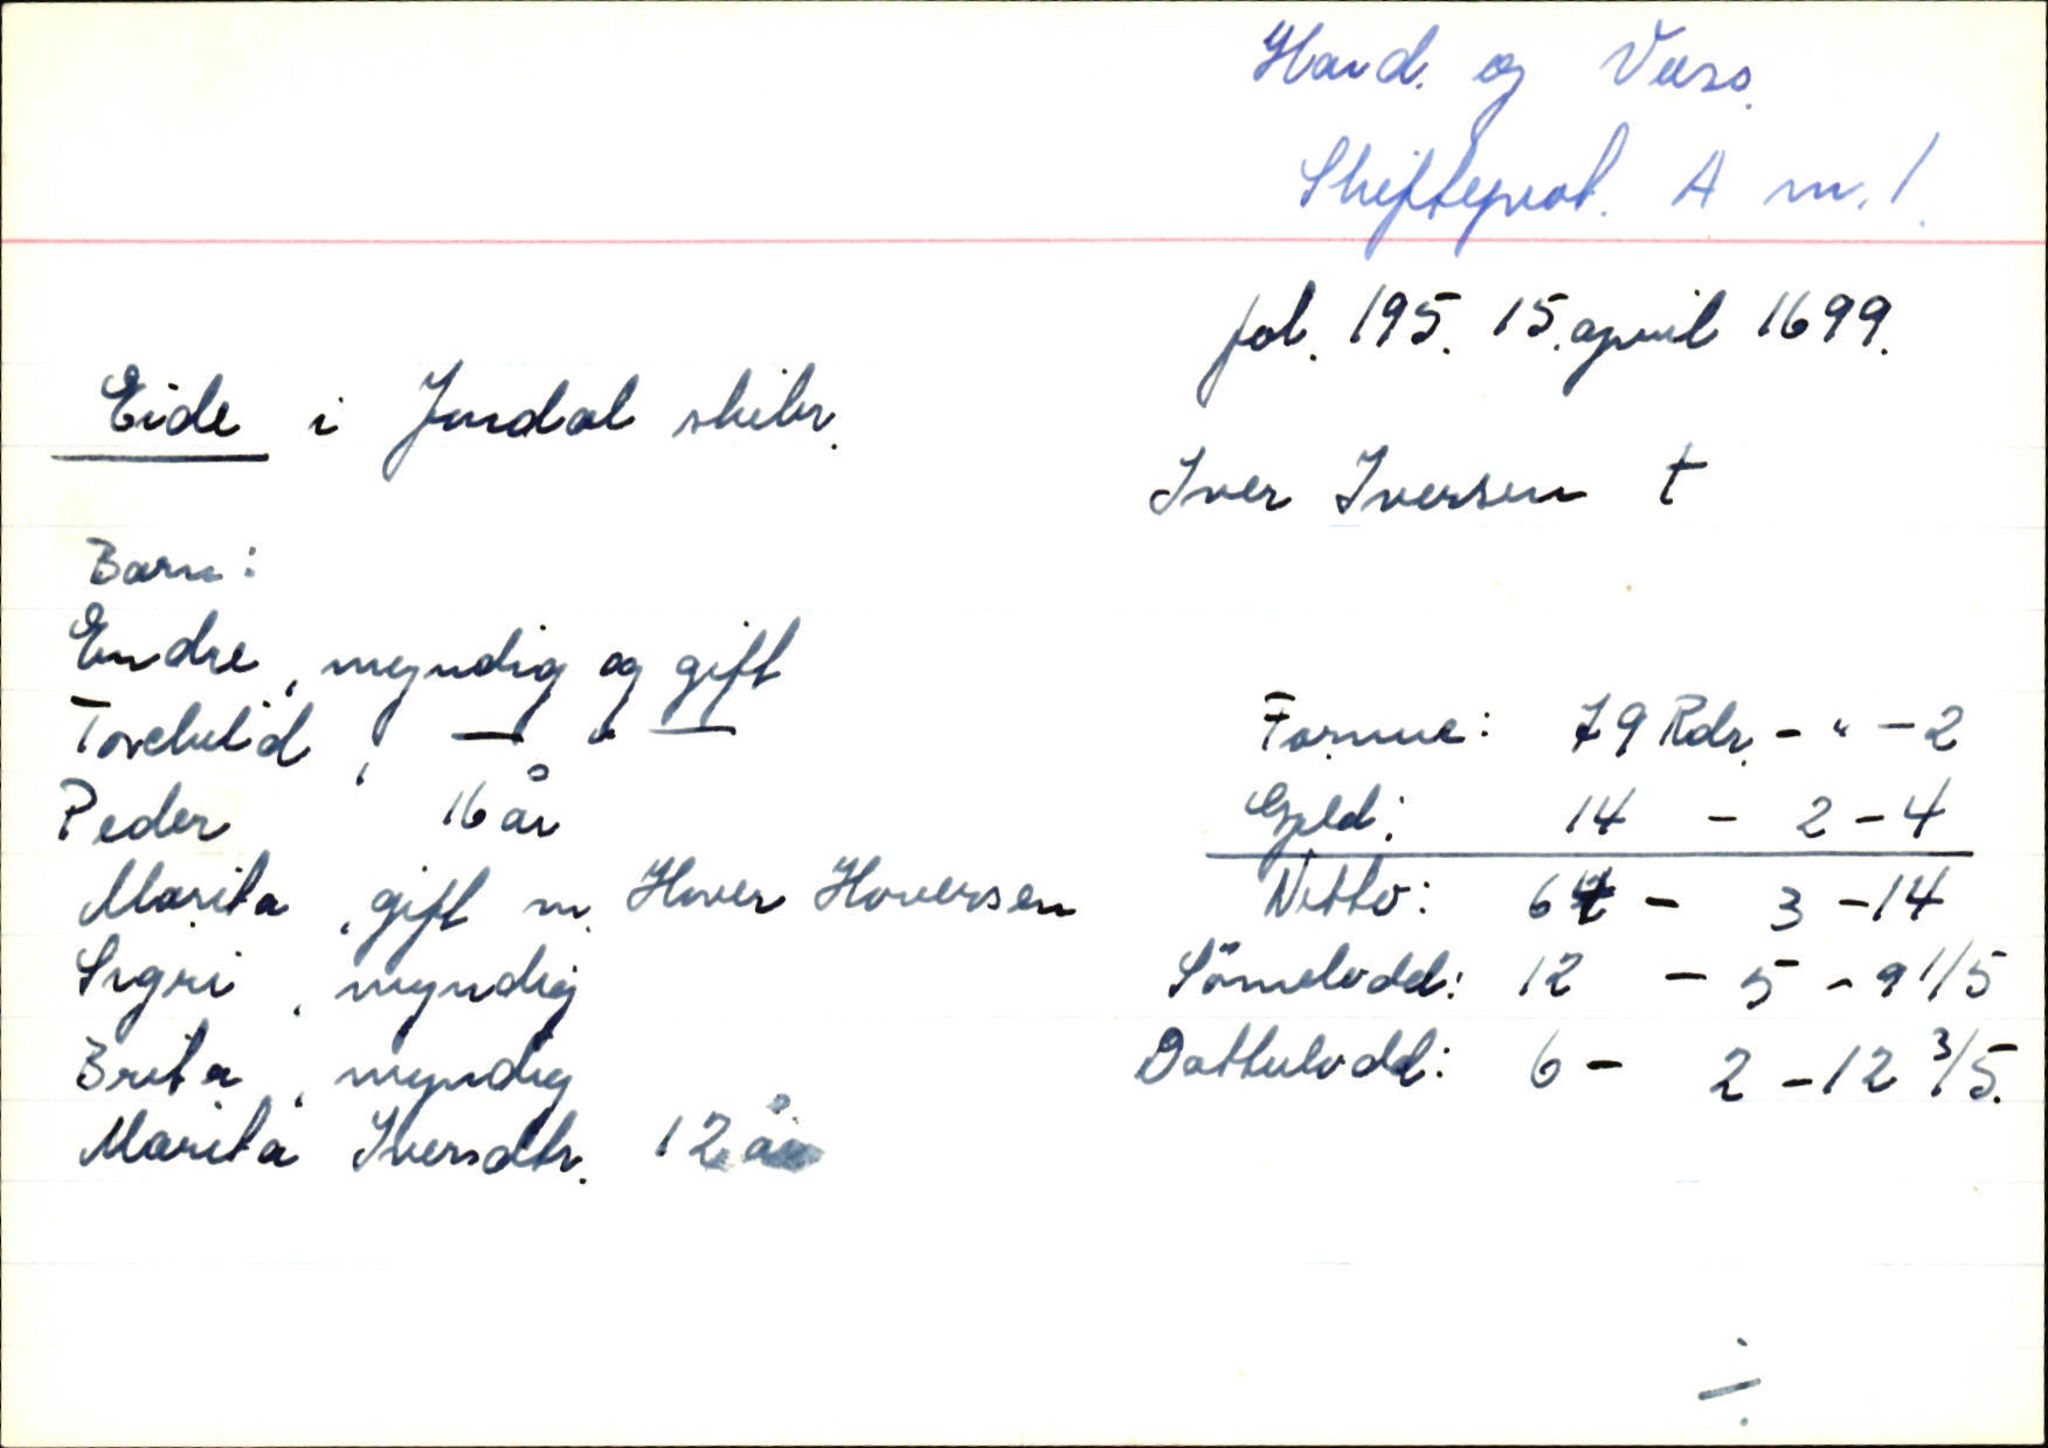 Hard. og Voss.
Skifteprot. A nr. 1.
fol. 195. 15. april 1699.
Eide i Jondal skibr.
Iver Iversen †
Barn:
Endre, myndig og gift
Torchild, — " —
Peder 16 år
Marita, gift m. Hover Hoversen
Sigri, myndig
Brita, myndig
Marita Iversdtr. 12 år
Formue: 79 Rdr. - " - 2
Gjeld: 14 - 2 - 4
Netto: 64 - 3 - 14
Sönnelodd: 12 - 5 - 9 1/5
Dotterlodd: 6 - 2 - 12 3/5.